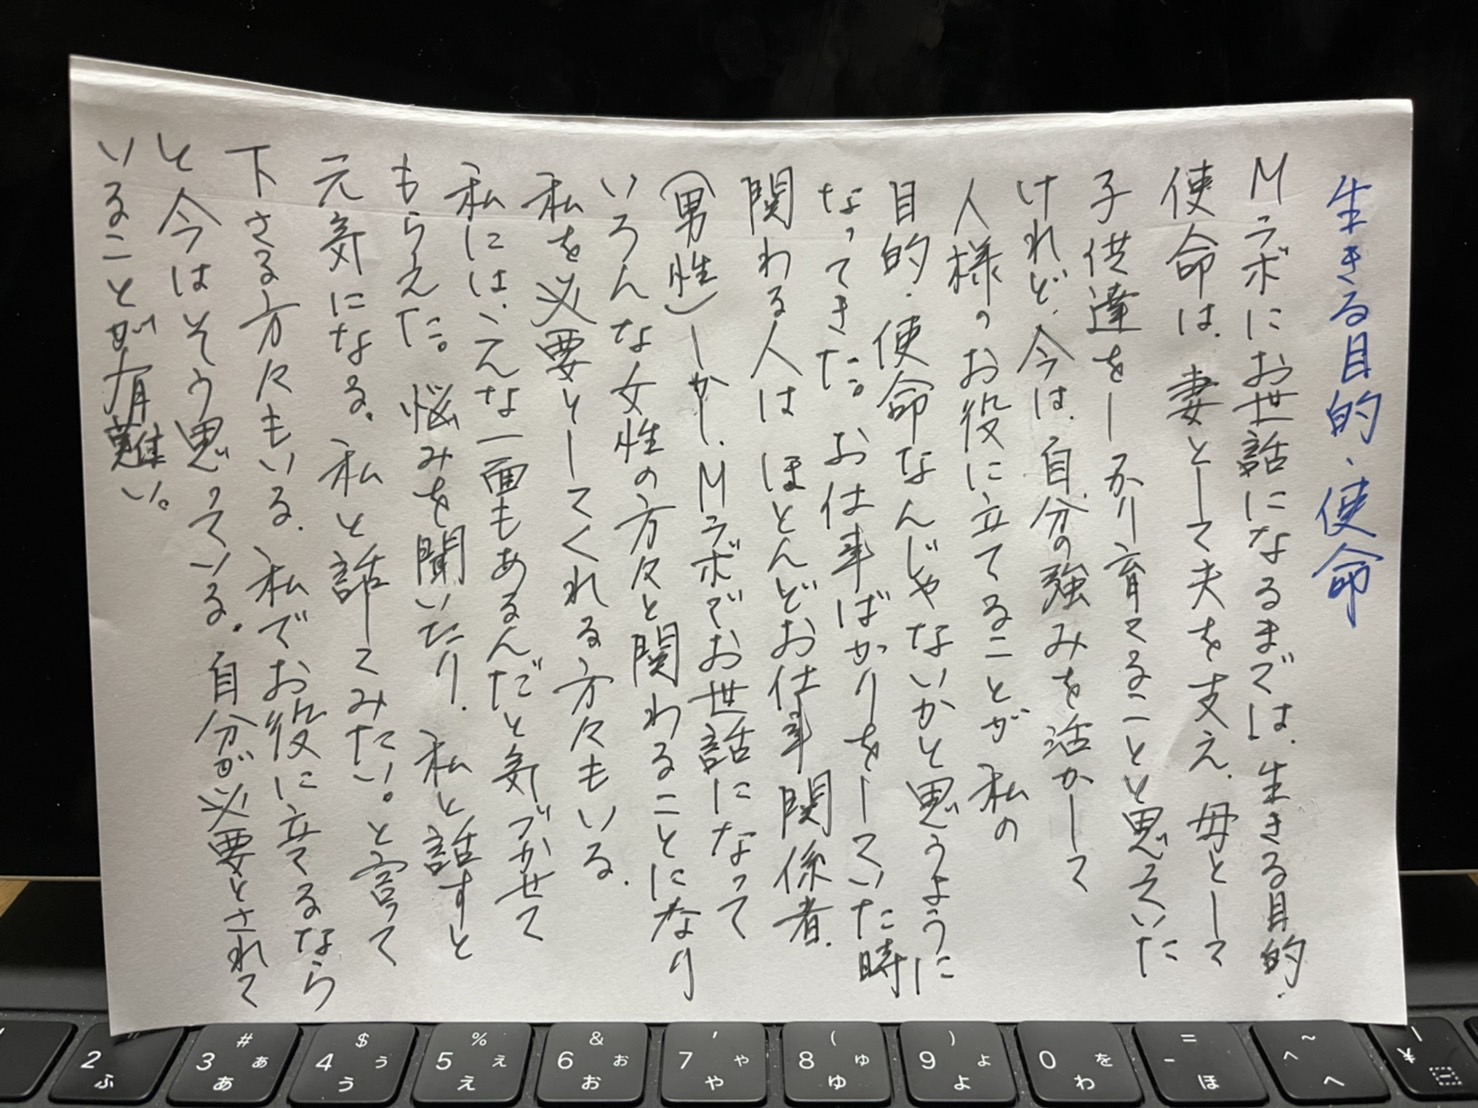 生きる目的・使命
Mラボにお世話になるまでは、生きる目的、
使命は、妻として夫を支え、母として
子供達をしっかり育てることと思っていた
けれど、今は、自分の強みを活かして
人様のお役に立てることが私の
目的・使命なんじゃないかと思うように
なってきた。お仕事ばかりをしていた時
関わる人はほとんどお仕事関係者、
(男性)しかし、Mラボでお世話になって
いろんな女性の方々と関わることになり
私を必要としてくれる方々もいる、
私には、こんな一面もあるんだと気づかせて
もらえた。悩みを聞いたり、私と話すと
元気になる。私と話してみたい。と言って
下さる方々もいる、私でお役に立てるなら
と今はそう思っている。自分が必要とされて
いることが有難い。
2 ふ
# 3 ぁ あ
$ 4 ぅ う
% 5 ぇ え
& 6 ぉ お
' 7 ゃ や
( 8 ゅ ゆ
) 9 ょ よ
0 を わ
= - ほ
~ ^ へ
| ¥